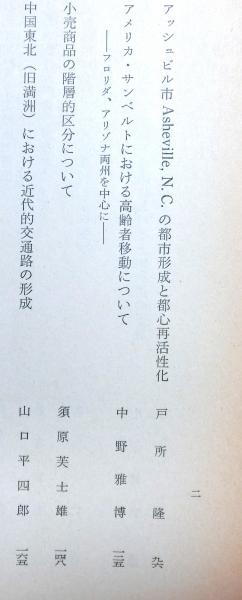 アッシュビル市 Asheville, N. C. の都市形成と都心再活性化 戸所 隆 九六
アメリカ・サンベルトにおける高齢者移動について 中野雅博 一三五
――フロリダ、アリゾナ両州を中心に――
小売商品の階層的区分について 須原芙士雄 一四八
中国東北（旧満洲）における近代的交通路の形成 山口平四郎 一六五
二